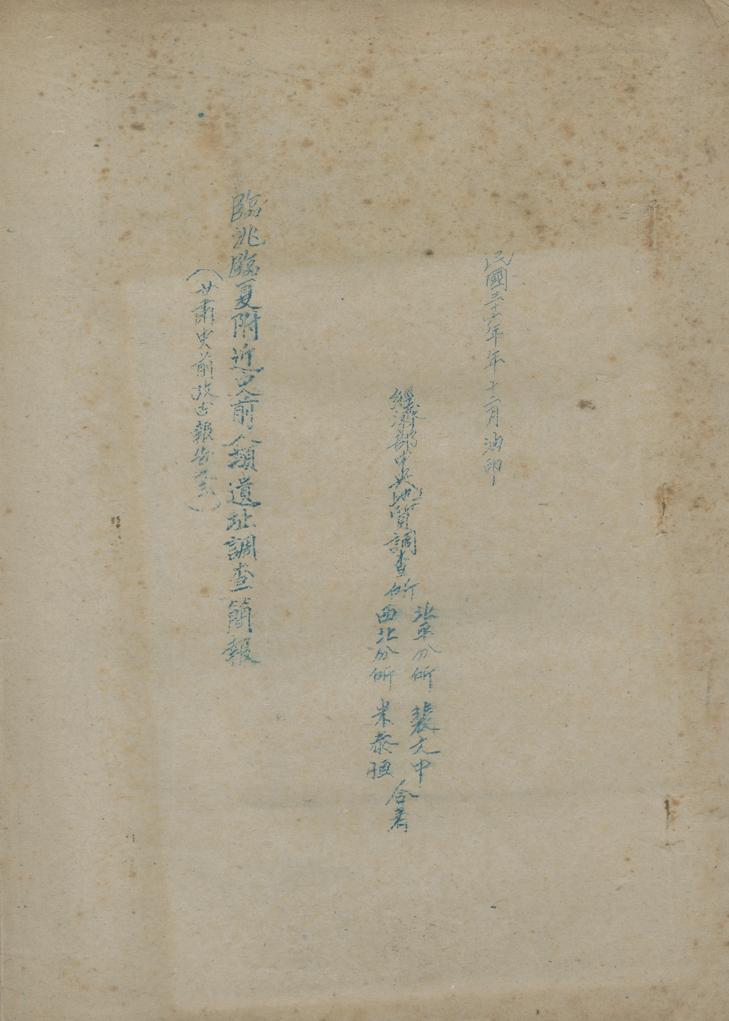 民國三十六年年十二月油印
經濟部中央地質調查所
北平分所 裴文中
西北分所 米泰恒
合著
臨洮臨夏附近史前人類遺址調查簡報
（甘肅史前考古報告之三）